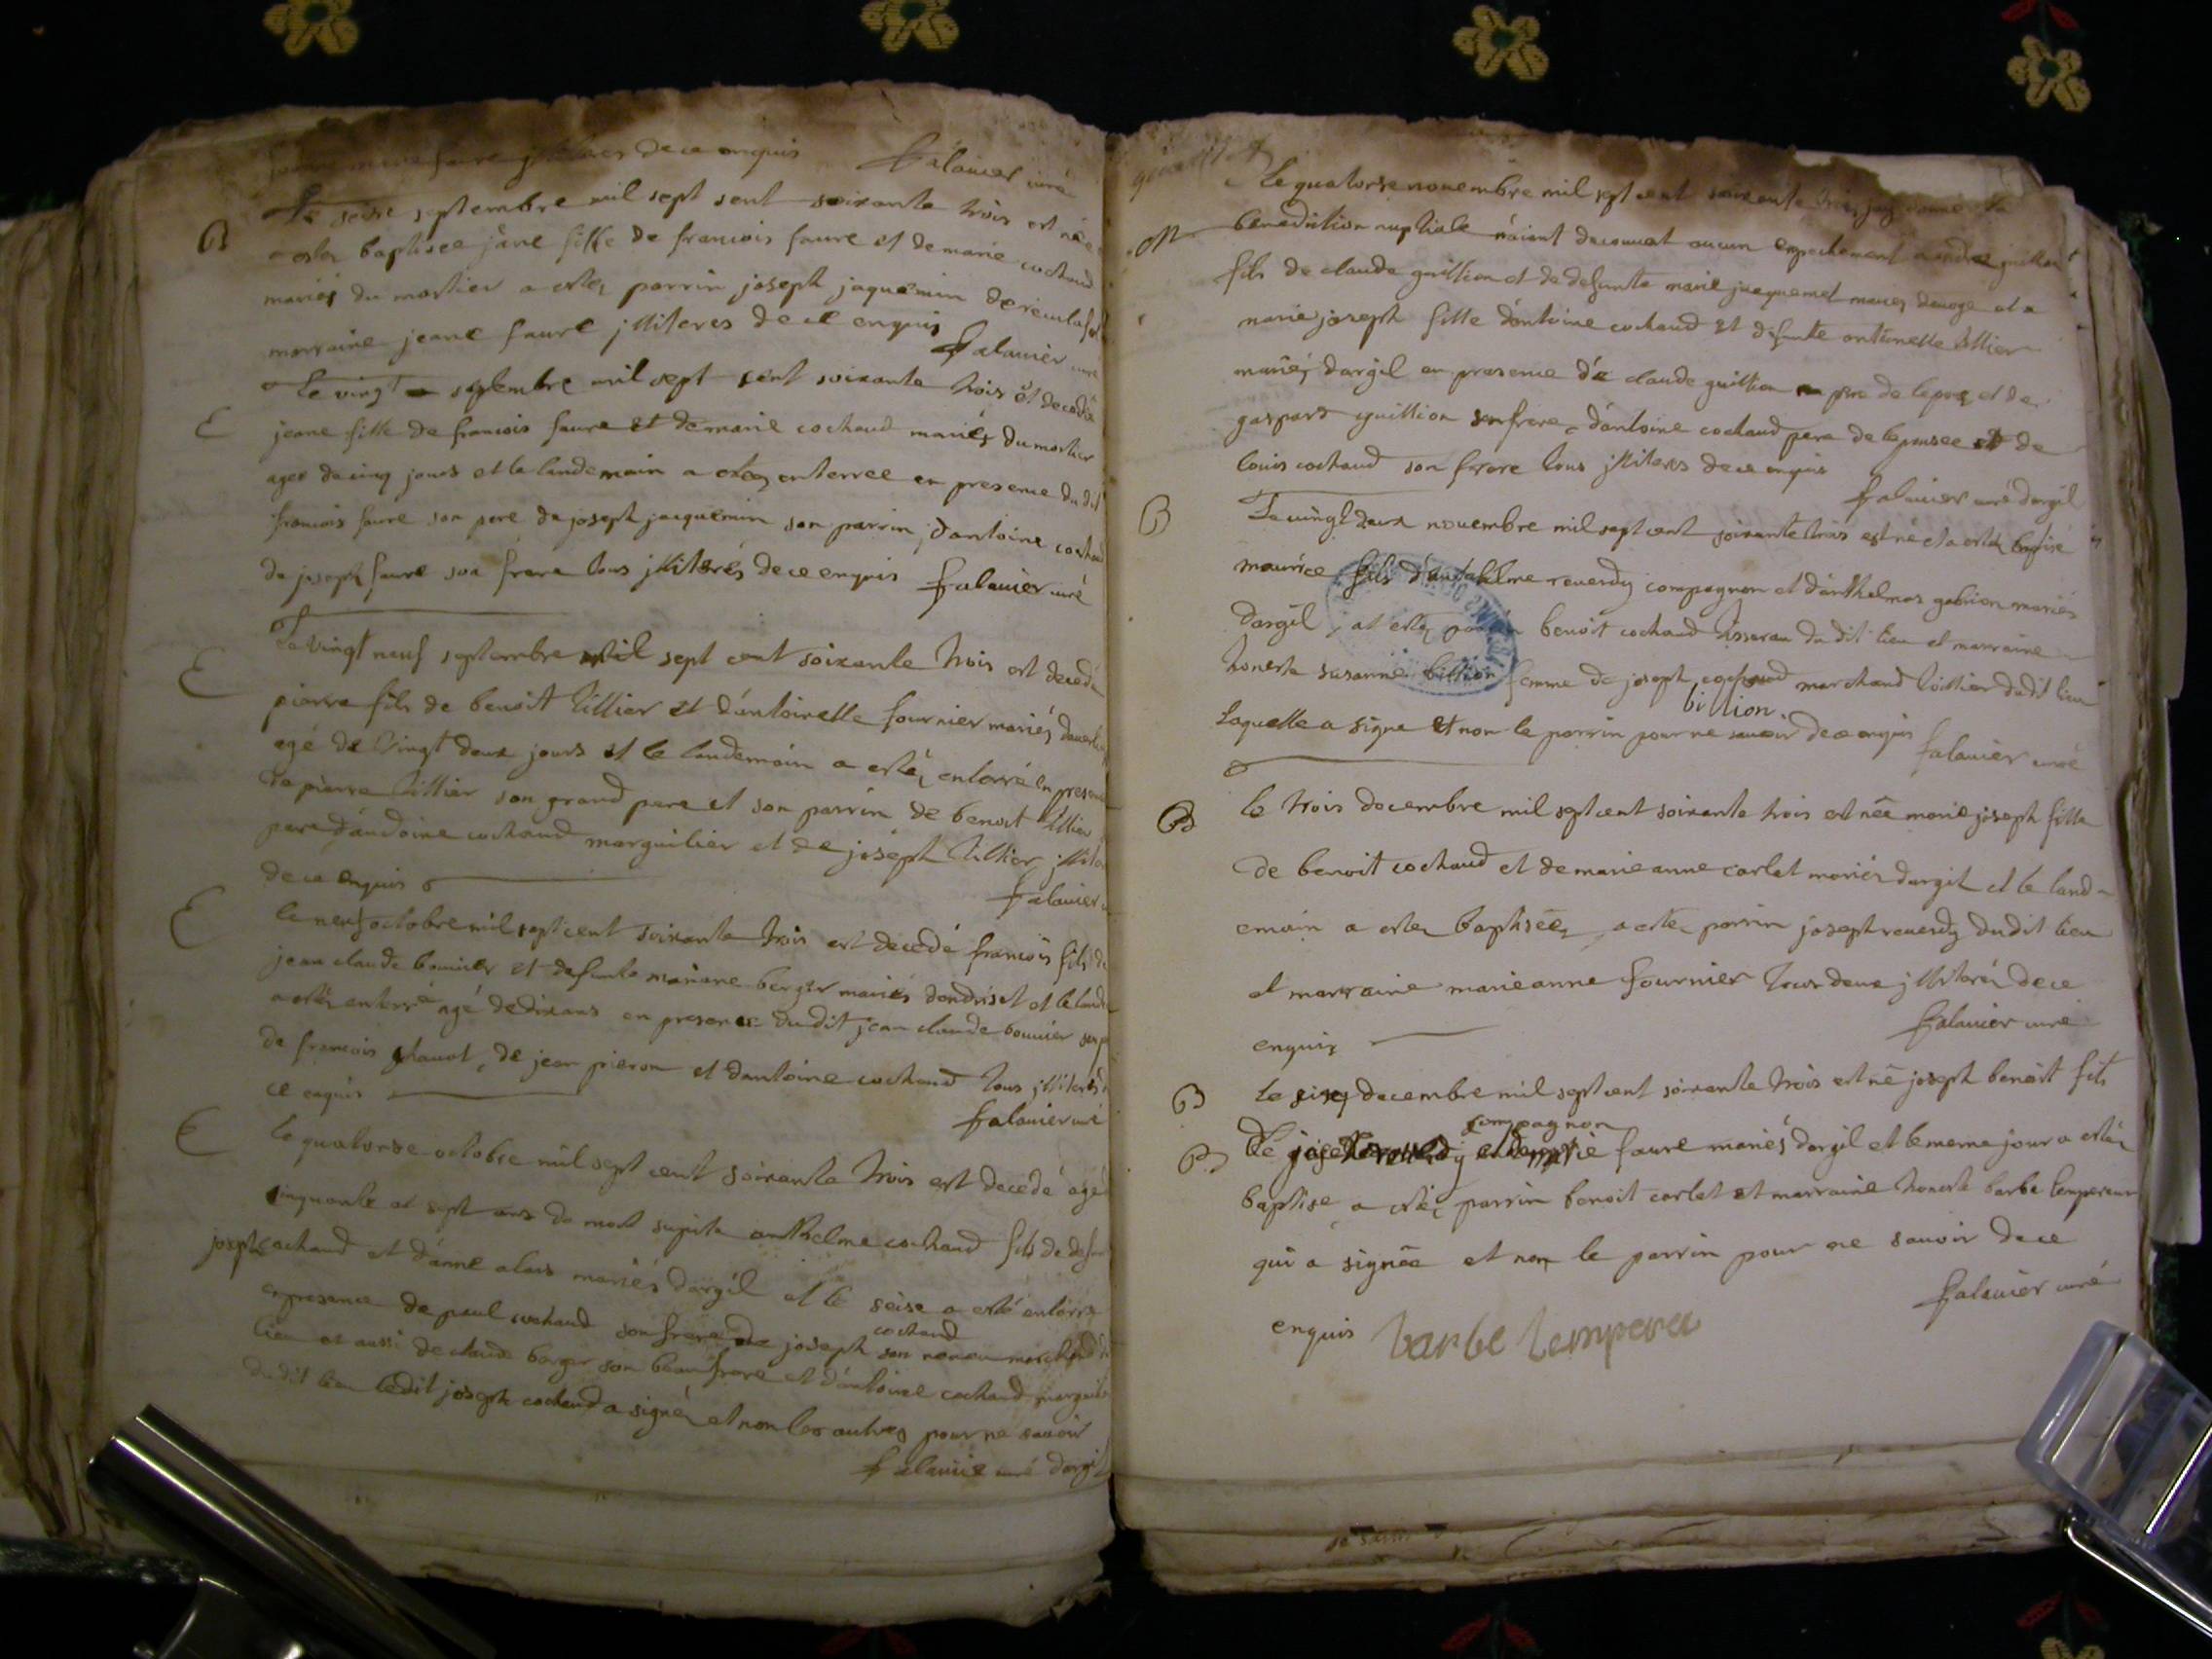 faure illiteres de ce enquis falavier curé
B
Le seise septembre mil sept sent soixante trois est née
a estez baptisee jane fille de francois faure et de marie cochaud
mariés du mortier a estez parrin joseph jaquemin
marraine jeane faure jlliteres de ce enquis falavier curé
E
Le vingt septembre mil sept sent soixante trois et decedée
jeane fille de francois faure et de marie cochaud mariés du mortier
agee de cinq jours et le landemain a estez enterree en presence du dit
francois faure son pere de joseph jacquemin son parrin, dantoine cochaud
de joseph faure son frere tous jlliterés de ce enquis falavier curé
E
Le vingt neuf septembre mil sept cent soixante trois est decedé
pierre fils de benoit tillier et d'antoinette fournier mariés
agé de vingt deux jours et le landemain a estéz enterré en presence
de pierre tillier son grand pere et son parrin de benoit tillier
pere d'andoine cochaud marguilier et de joseph tillier
de ce enquis
falavier
E
le neuf octobre mil sept cent soixante trois est decedé francois fils de
jean claude bouvier et defunte mariane berger mariés dandriset et le lande
a estéz enterré agé de dix ans en presence du dit jean claude bouvier son p
de francois chavot, de jean pieron et dantoine cochaud tous jlliterés
ce enquis
falavier curé
E
le quatorse octobre mil sept cent soixante trois est decedé agé
cinquante et sept ans de mort supite anthelme cochaud fils de defun
joseph cochaud et d'anne alars mariés dargil et le seise a esté enterré
en presence de paul cochaud son frere de joseph cochaud son neveu marchand d
lieu et aussi de claude berger son beau frere et d'antoine cochaud marguilier
du dit lieu ledit joseph cochaud a signéz et non les autres pour ne savoir
falavie curé dargil
M
Le quatorse novembre mil sept cent soixante trois jay donné la
benediction nuptiale naiant decouvert aucun enpechement a andre guillion
fils de claude guillion et de defunte marie jacquemet mariez et a
marie joseph fille d'antoine cochaud et defunte antoinette tillier
mariés dargil en presence de claude guillion pere de lepoux et de
gaspard guillion son frere, d'antoine cochaud pere de lepousee et de
louis cochaud son frere tous jlliteres de ce enquis
falavier curé dargil
B
Le vingt deux novembre mil sept cent soixante trois est né et a estéz baptisé
maurice fils d'anthelme reverdy compagnon et d'anthelmas gabrion mariés
dargil, at estez parrin benoit cochaud tisseran du dit lieu et marraine
honeste susanne billion femme de joseph cochaud marchand du dit lieu
billion.
laquelle a signe et non le parrin pour ne savoir de ce enquis
falavier curé
B
le trois decembre mil sept cent soixante trois est née marie joseph fille
de benoit cochaud et de marie anne carlet mariés dargil et le land-
emain a estez baptiséez, a estez parrin joseph reverdy du dit lieu
et marraine marie anne fournier tous deux jlliterés de ce
falavier curé
enquis
B
Le sise decembre mil sept cent soixante trois est né joseph benoit fils
compagnon
B
De joseph reverdy et de marie faure mariés dargil et le meme jour a estéz
baptise a estéz parrin benoit carlet et marraine honeste barbe lempereur
qui a signée et non le parrin pour ne savoir de ce
falavier curé
enquis barbe lemperer